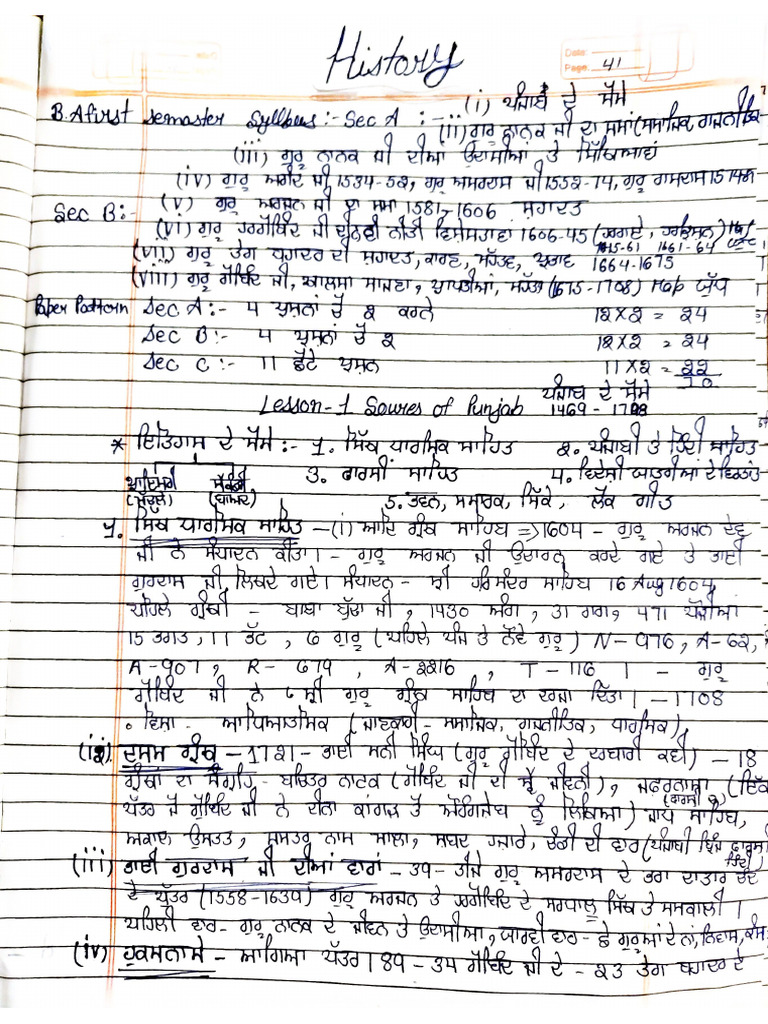 History
Date:
Page: 41
(i) ਪੰਜਾਬ ਦੇ ਸੋਮੇ
B.A first semaster Syllbus:- Sec A :- (ii) ਗੁਰੂ ਨਾਨਕ ਜੀ ਦਾ ਸਮਾਂ (ਸਮਾਜਿਕ, ਰਾਜਨੀਤਿਕ
(iii) ਗੁਰੂ ਨਾਨਕ ਜੀ ਦੀਆਂ ਉਦਾਸੀਆਂ ਤੇ ਸਿੱਖਿਆਵਾਂ
(iv) ਗੁਰੂ ਅਗੰਦ ਜੀ 1534-52, ਗੁਰੂ ਅਮਰਦਾਸ ਜੀ 1552-74, ਗੁਰੂ ਰਾਮਦਾਸ
Sec B:- (v) ਗੁਰੂ ਅਰਜਨ ਜੀ ਦਾ ਸਮਾਂ 1581-1606 ਸ਼ਹਾਦਤ
(vi) ਗੁਰੂ ਹਰਗੋਬਿੰਦ ਜੀ ਦੀ ਨਵੀਂ ਨੀਤੀ 1606-45 (ਹਰਰਾਏ, ਹਰਕ੍ਰਿਸ਼ਨ)
1645-61 1661-64
(vii) ਗੁਰੂ ਤੇਗ ਬਹਾਦਰ ਦੀ ਸ਼ਹਾਦਤ, ਕਾਰਣ, ਮਹੱਤਵ, ਪ੍ਰਭਾਵ 1664-1675
(viii) ਗੁਰੂ ਗੋਬਿੰਦ ਜੀ, ਖਾਲਸਾ ਸਾਜਣਾ, ਪ੍ਰਾਪਤੀਆਂ, ਮਹੱਤਵ (1675-1708) Map ਯੁੱਧ
Paper Pattern Sec A:- 4 ਪ੍ਰਸ਼ਨਾਂ ਚੋਂ 2 ਕਰਨੇ 12×2 = 24
Sec B:- 4 ਪ੍ਰਸ਼ਨਾਂ ਚੋਂ 2 12×2 = 24
Sec C:- 11 ਛੋਟੇ ਪ੍ਰਸ਼ਨ 11×2 = 22
70
ਪੰਜਾਬ ਦੇ ਸੋਮੇ
Lesson-1 Soures of Punjab 1469-1708
* ਇਤਿਹਾਸ ਦੇ ਸੋਮੇ:- 1. ਸਿੱਖ ਧਾਰਮਿਕ ਸਾਹਿਤ 2. ਪੰਜਾਬੀ ਤੇ ਹਿੰਦੀ ਸਾਹਿਤ
ਪ੍ਰਾਇਮਰੀ ਸੈਕੰਡਰੀ 3. ਫਾਰਸੀ ਸਾਹਿਤ 4. ਵਿਦੇਸ਼ੀ ਯਾਤਰੀਆਂ ਦੇ ਬਿਰਤਾਂਤ
(ਪਹਿਲਾਂ) (ਬਾਅਦ) 5. ਭਵਨ, ਸਮਾਰਕ, ਸਿੱਕੇ, ਲੋਕ ਗੀਤ
1. ਸਿੱਖ ਧਾਰਮਿਕ ਸਾਹਿਤ - (i) ਆਦਿ ਗ੍ਰੰਥ ਸਾਹਿਬ => 1604 - ਗੁਰੂ ਅਰਜਨ ਦੇਵ
ਜੀ ਨੇ ਸੰਪਾਦਨ ਕੀਤਾ। - ਗੁਰੂ ਅਰਜਨ ਜੀ ਉਚਾਰਨ ਕਰਦੇ ਗਏ ਤੇ ਭਾਈ
ਗੁਰਦਾਸ ਜੀ ਲਿਖਦੇ ਗਏ। ਸੰਪਾਦਨ - ਸ਼੍ਰੀ ਹਰਿਮੰਦਰ ਸਾਹਿਬ 16 Aug 1604,
ਪਹਿਲੇ ਗ੍ਰੰਥੀ - ਬਾਬਾ ਬੁੱਢਾ ਜੀ, 1430 ਅੰਗ, 31 ਰਾਗ, 471 ਪੰਨੀਆ
15 ਭਗਤ, 11 ਭੱਟ, 6 ਗੁਰੂ (ਪਹਿਲੇ ਪੰਜ ਤੇ ਨੌਵੇਂ ਗੁਰੂ) N-976, A-62,
A-907, R-679, A-2216, T-116 । - ਗੁਰੂ
ਗੋਬਿੰਦ ਜੀ ਨੇ ਸ਼੍ਰੀ ਗੁਰੂ ਗ੍ਰੰਥ ਸਾਹਿਬ ਦਾ ਦਰਜਾ ਦਿੱਤਾ। - 1708
. ਵਿਸ਼ਾ - ਆਧਿਆਤਮਿਕ (ਜਾਣਕਾਰੀ - ਸਮਾਜਿਕ, ਰਾਜਨੀਤਿਕ, ਧਾਰਮਿਕ)
(ii) ਦਸਮ ਗ੍ਰੰਥ - 1721 - ਭਾਈ ਮਨੀ ਸਿੰਘ (ਗੁਰੂ ਗੋਬਿੰਦ ਦੇ ਦਰਬਾਰੀ ਕਵੀ) - 18
ਗ੍ਰੰਥਾਂ ਦਾ ਸੰਗ੍ਰਹਿ - ਬਚਿੱਤਰ ਨਾਟਕ (ਗੋਬਿੰਦ ਜੀ ਦੀ ਸ੍ਵੈ ਜੀਵਨੀ), ਜ਼ਫ਼ਰਨਾਮਾ (ਇੱਕ
ਪੱਤਰ ਜੋ ਗੋਬਿੰਦ ਜੀ ਨੇ ਦੀਨਾ ਕਾਂਗੜ ਤੋਂ ਔਰੰਗਜੇਬ ਨੂੰ ਲਿਖਿਆ) ਜਾਪ ਸਾਹਿਬ,
ਅਕਾਲ ਉਸਤਤ, ਸ਼ਸਤਰ ਨਾਮ ਮਾਲਾ, ਸ਼ਬਦ ਹਜ਼ਾਰੇ, ਚੰਡੀ ਦੀ ਵਾਰ (ਪੰਜਾਬੀ
(iii) ਭਾਈ ਗੁਰਦਾਸ ਜੀ ਦੀਆਂ ਵਾਰਾਂ - 39 - ਤੀਜੇ ਗੁਰੂ ਅਮਰਦਾਸ ਦੇ ਭਰਾ ਦਾਤਾਰ ਚੰਦ
ਦੇ ਪੁੱਤਰ (1558-1639) ਗੁਰੂ ਅਰਜਨ ਤੇ ਹਰਗੋਬਿੰਦ ਦੇ ਸਰਧਾਲੂ ਸਿੱਖ ਤੇ ਸਮਕਾਲੀ।
ਪਹਿਲੀ ਵਾਰ - ਗੁਰੂ ਨਾਨਕ ਦੇ ਜੀਵਨ ਤੇ ਉਦਾਸੀਆ, ਯਾਰਵੀਂ ਵਾਰ - ਛੇ ਗੁਰੂਆਂ ਦੇ ਨਾਂ, ਨਿਵਾਸ,
(iv) ਹੁਕਮਨਾਮੇ - ਆਗਿਆ ਪੱਤਰ। 89 - 34 ਗੋਬਿੰਦ ਜੀ ਦੇ - 23 ਤੇਗ ਬਹਾਦਰ ਦੇ